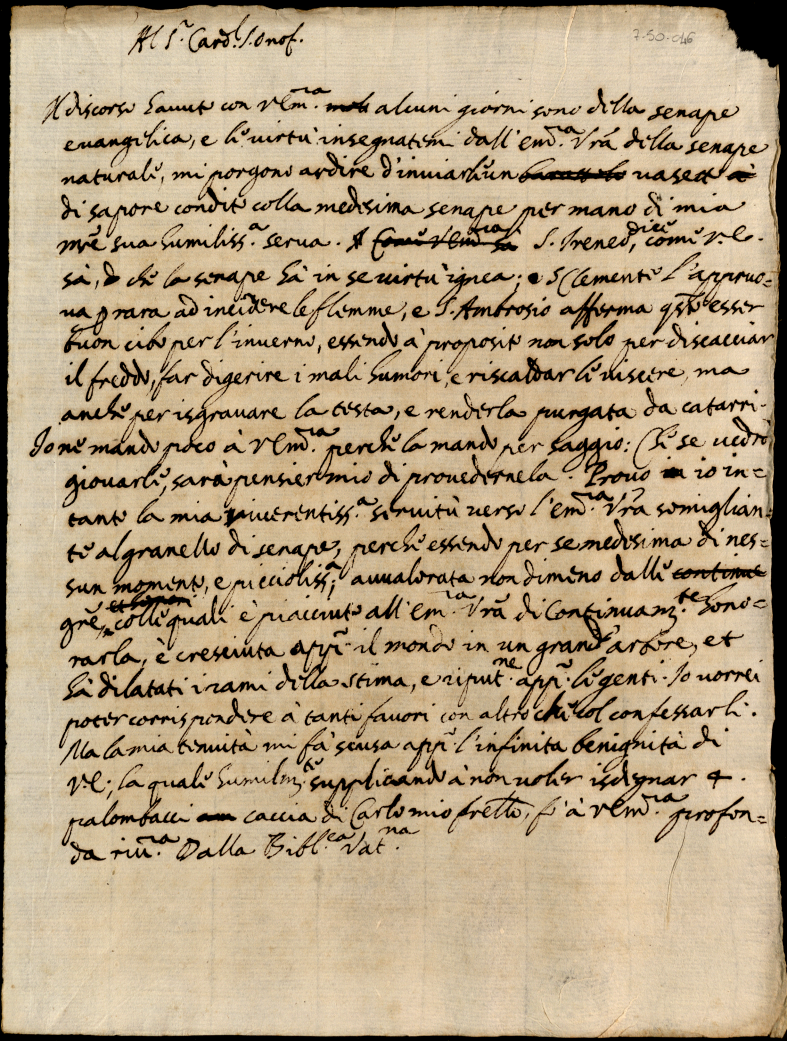 Al S.r Card.l S. Onof.
7-50-046
Il discorso havuto con V Em.za alcuni giorni sono della senape
evangelica, e le virtù insegnatemi dall'Em.a Vrã della senape
naturale, mi porgono ardire d'inviarle un vasetto
di sapore condito colla medesima senape per mano di mia
mrẽ sua humiliss.a serva. S. Ireneo dice, come V. E.
sà, che la senape hà in se virtù ignea; e S Clemente l'appruo=
va p rara ad incidere le flemme, e S. Ambrosio afferma qsto esser
buon cibo per l'inverno, essendo à proposito non solo per discacciar
il freddo, far digerire i mali humori, e riscaldar le viscere, ma
anche per isgravare la testa, e renderla purgata da catarri.
Io ne mando poco à V Em.za perche la mando per saggio: Che se vedrò
giovarle, sarà pensier mio di provedernela. Provo io in=
tanto la mia riverentiss.a servitù verso l'Em.za Vrã somiglian=
te al granello di senape, perche essendo per se medesima di nes=
sun momento, e piccioliss.a, avvalorata non dimeno dalle continue
grẽ, colle quali è piacciuto all'Em.za Vrã di continuam.te hono=
rarla, è cresciuta app.o il mondo in un grand'arbore, et
hà dilatati i rami della stima, e riput.ne app.o le genti. Io vorrei
poter corrispondere à tanti favori con altro che col confessarli.
Ma la mia tenuità mi fà scusa app.o l'infinita benignità di
V. E.; la quale humilm.te supplicando à non voler isdegnar 4.
palombacci caccia di Carlo mio frello, fò à V Em.za profon=
da riv.za Dalla Bibl.ca Vat.na